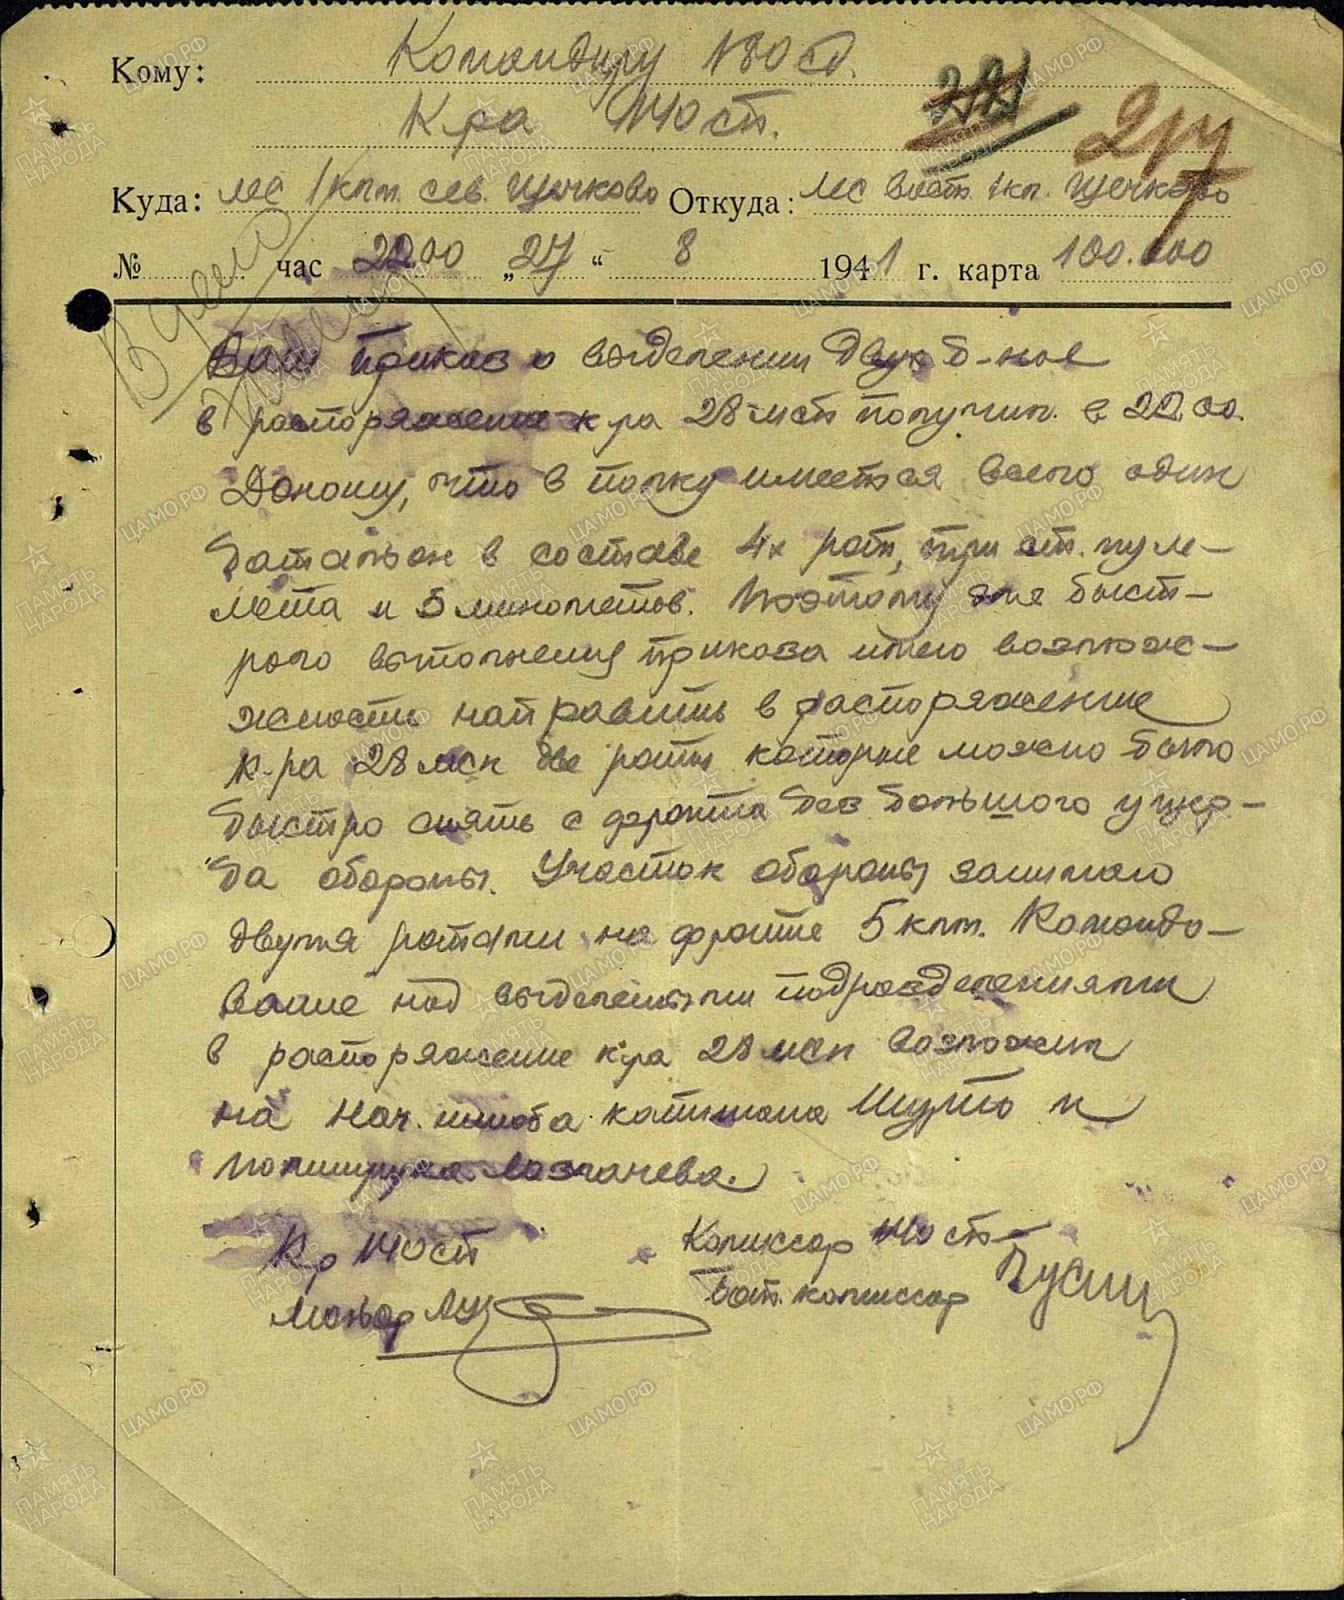 Кому: Командиру 180 сд.
К-ра 140 сп.
221
217
Куда: лес 1 клм. сев. Щечково Откуда: лес вост. 1 кл. Щечково
№ час 22 00 „27“ 8 1941 г. карта 100.000
Ваш приказ о выделении двух б-нов
в распоряжение к-ра 28 мсп получил в 22.00.
Доношу, что в полку имеется всего один
батальон в составе 4х рот, три ст. пуле-
мета и 5 минометов. Поэтому для быст-
рого выполнения приказа имею возмож-
жность направить в распоряжение
к-ра 28 мсп две роты которые можно было
быстро снять с фронта без большого ущер-
ба обороны. Участок обороны занимаю
двумя ротами на фронте 5 клм. Командо-
вание над выделенными подразделениями
в распоряжение к-ра 28 мсп возложил
на нач. штаба капитана и
политрука
К-р 140 сп
Майор
Комиссар 140 сп
Бат. комиссар
ПАМЯТЬ НАРОДА
ЦАМО.РФ